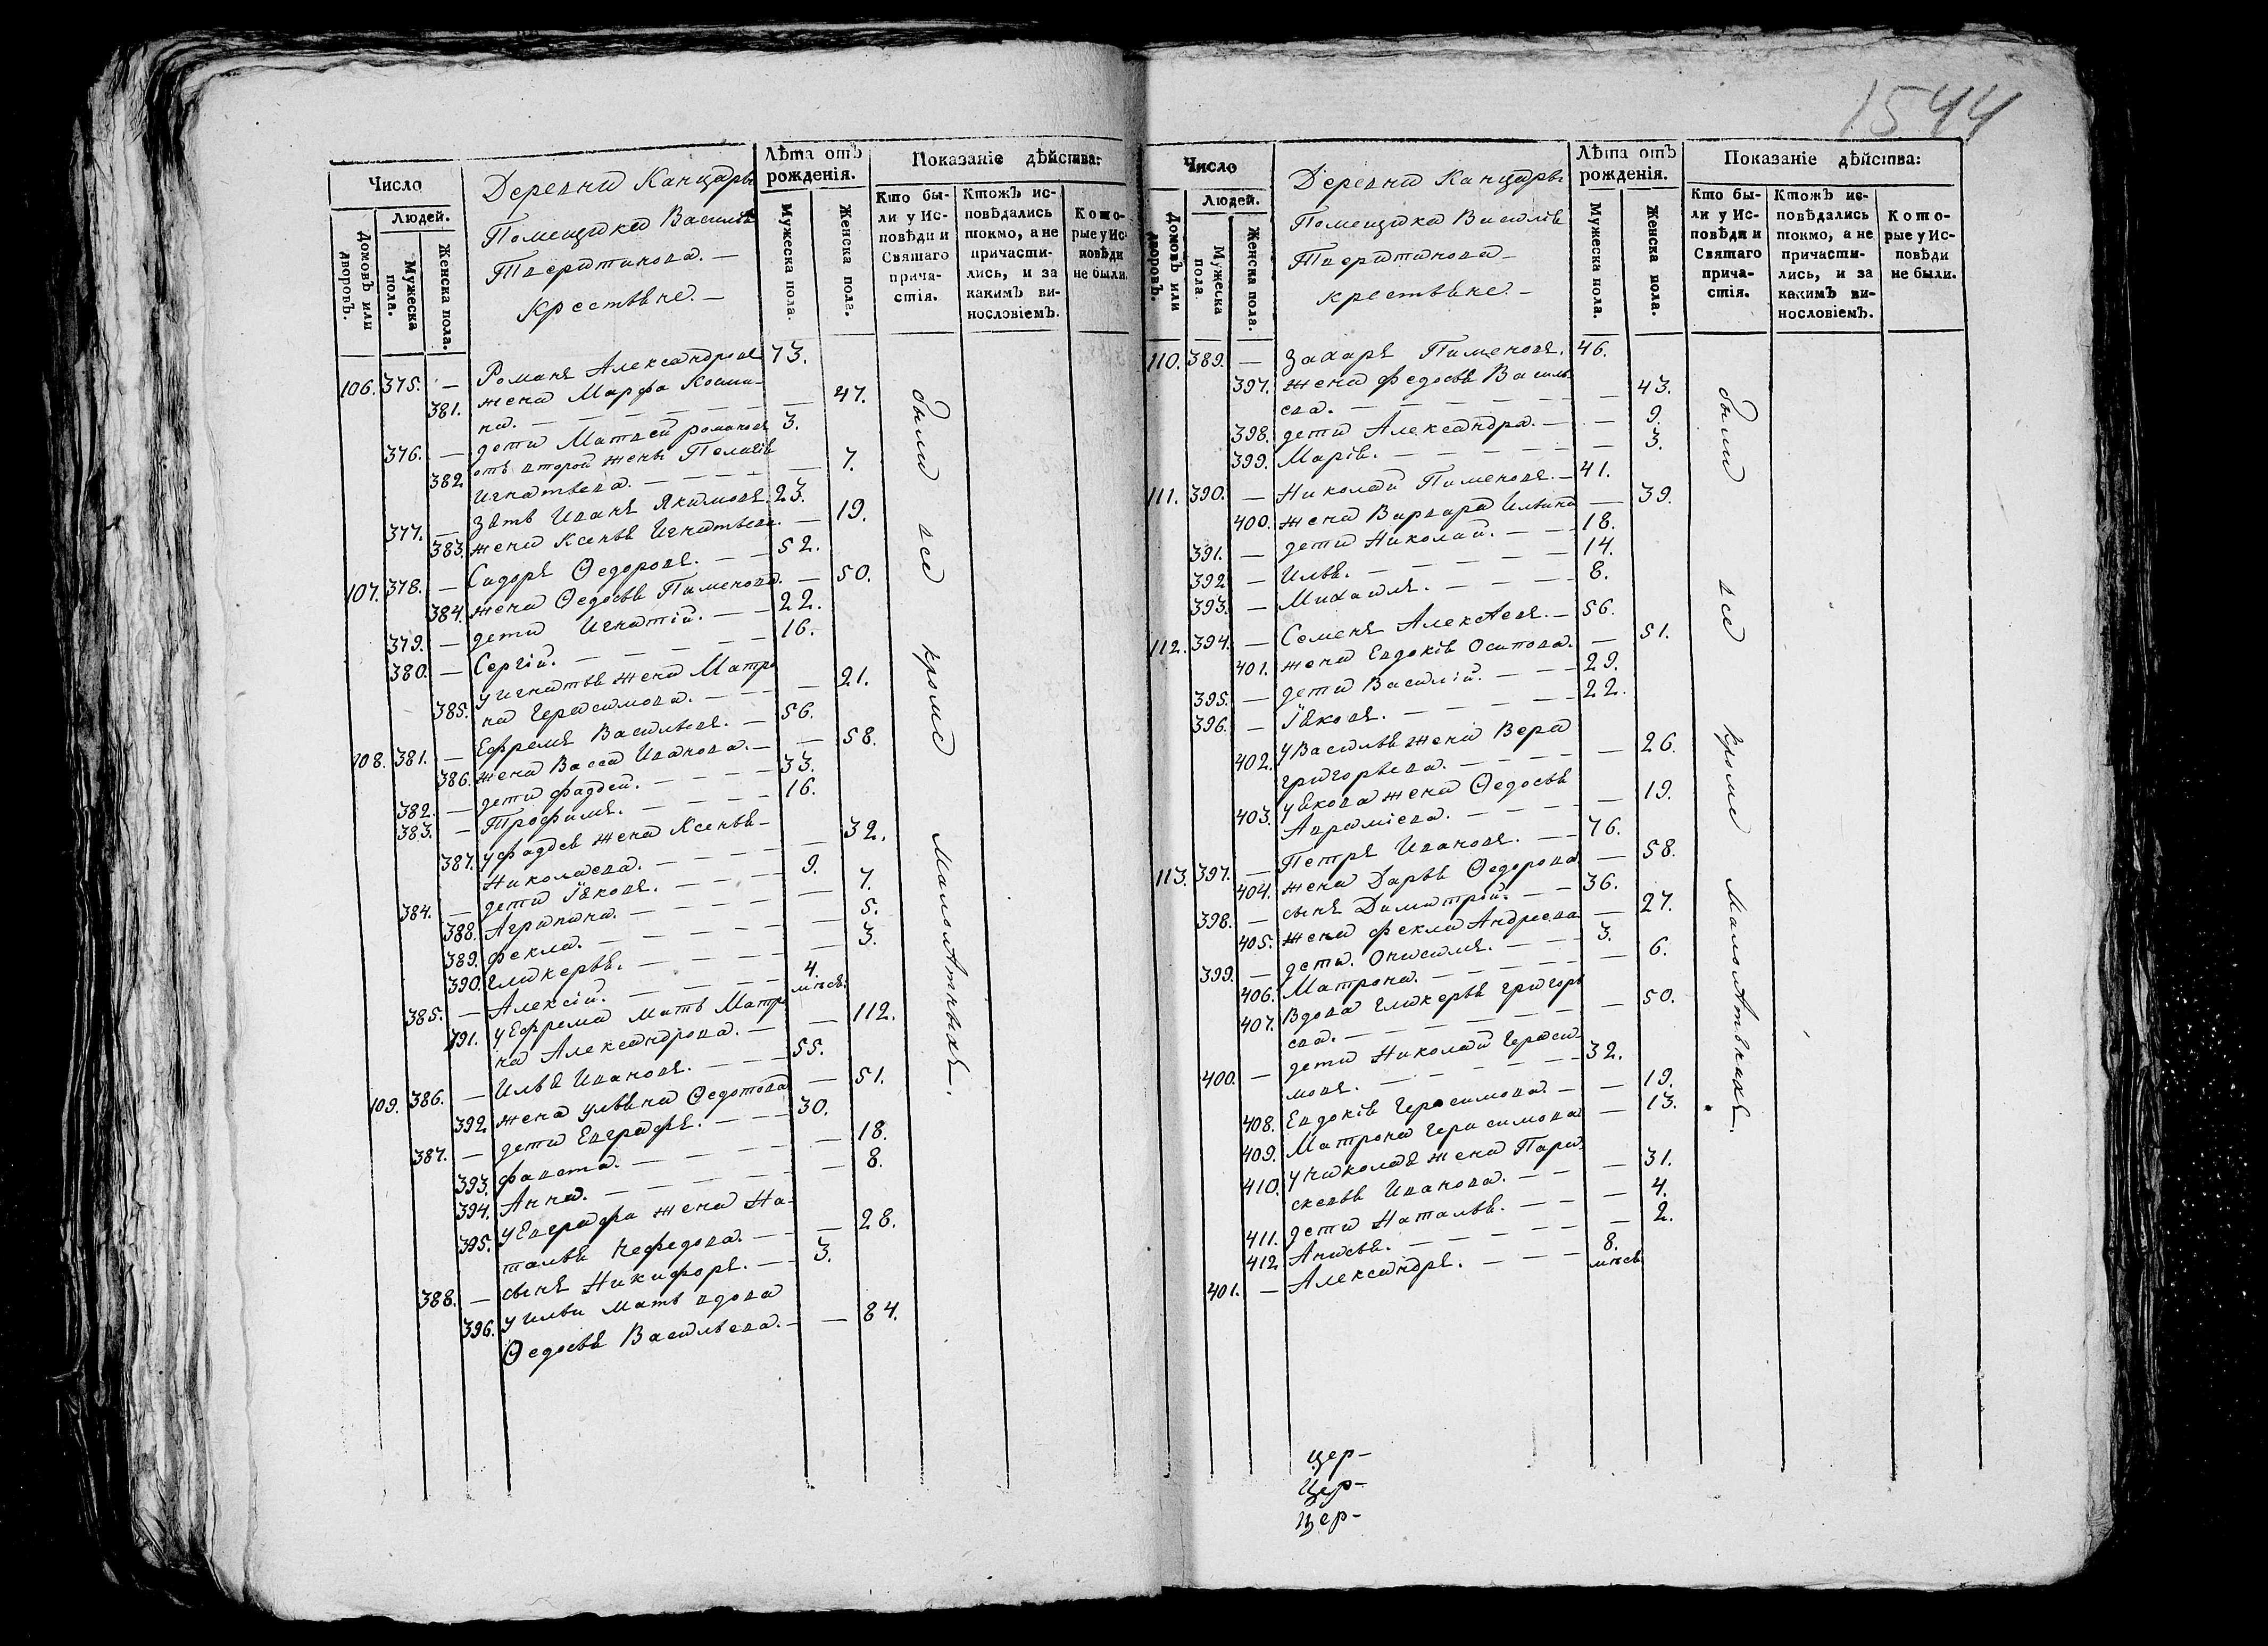 1544
Число
Людей.
Домовъ или дворовъ.
Мужеска пола.
Женска пола.
Деревни Канцеры
Помещика Василія
Тверитинова. —
крестьяне. —
Лѣта отъ рожденія.
Мужеска пола.
Женска пола.
Показаніе дѣйства:
Кто были у Исповѣди и Святаго причастія.
Ктожъ исповѣдались токмо, а не причастились, и за какимъ винословіемъ.
Которые у Исповѣди не были.
106. 375. — Романъ Александровъ 73.
381. жена Марфа Козми-
на. — 47.
376. — дети Матвей романовъ 3.
382. отъ второй жены Пелагія
Игнатьева. — 7.
377. — Зять Иванъ Якимовъ. 23.
383. жена Ксенья Игнатьева. — 19.
107. 378. — Сидоръ Ѳедоровъ. — 52.
384. жена Ѳедосья Пименова. — 50.
379. — дети Игнатій. — 22.
380. — Сергій. — 16.
385. у игнатья жена Матре
на Герасимова. — 21.
108. 381. — Ефремъ Васильевъ. — 56.
386. жена Васса Иванова. — 58.
382. — дети фаддей. — 33.
383. — Трофимъ. — 16.
387. у фаддея жена Ксенья
Николаева. — 32.
384. — дети Іяковъ. — 9.
388. Агрипина. — 7.
389. фекла. — 5.
390. Гликерья. — 3.
385. — Алексій. — 4. мѣся:
391. у Ефрема мать Матре
на Александрова. — 112.
109. 386. — Илья Ивановъ. — 55.
392. жена ульяна Ѳедотова — 51.
387. — дети Евграфъ. — 30.
393. фавста. — 18.
394. Анна. — 8.
395. у Евграфа жена На-
талья Нефедова. — 28.
388. — сынъ Никифоръ. — 3.
396. у ильи мать вдова
Ѳедосья Васильева. — 84.
были все кроме малолѣтныхъ.
Число
Людей.
Домовъ или дворовъ.
Мужеска пола.
Женска пола.
Деревни Канцеры
Помещика Василія
Тверитинова —
крестьяне. —
Лѣта отъ рожденія.
Мужеска пола.
Женска пола.
Показаніе дѣйства:
Кто были у Исповѣди и Святаго причастія.
Ктожъ исповѣдались токмо, а не причастились, и за какимъ винословіемъ.
Которые у Исповѣди не были.
110. 389. — Захаръ Пименовъ. 46.
397. жена федосья Василь
ева. — 43.
398. дети Александра. — 9.
399. Марія. — 3.
111. 390. — Николай Пименовъ. — 41.
400. жена Варвара Ильина — 39.
391. — дети Николай. — 18.
392. — Илья. — 14.
393. — Михаилъ. — 8.
112. 394. — Семенъ Алексѣевъ. — 56.
401. жена Евдокія Осипова. — 51.
395. — дети Василій. — 29.
396. — Іяковъ. — 22.
402. у Василья жена Вера
григорьева. — 26.
403. у якова жена Ѳедосья
Аврамієва. — 19.
113. 397. — Петръ Ивановъ. — 76.
404. жена Дарья Ѳедорова — 58.
398. — сынъ Димитрій. — 36.
405. жена фекла Андреева — 27.
399. — дети. Онисимъ. — 3.
406. Матрона. — 6.
407. Вдова Гликерья григорь
ева. — 50.
400. — дети Николай Гераси-
мовъ. — 32.
408. Евдокія Герасимова. — 19.
409. Матрона герасимова — 13.
410. у николая жена Пара
скевья Иванова. — 31.
411. дети Наталья. — 4.
412. Анисья. — 2.
401. — Александръ. — 8. мѣся
были все кроме малолѣтныхъ.
цер-
Цер-
цер-